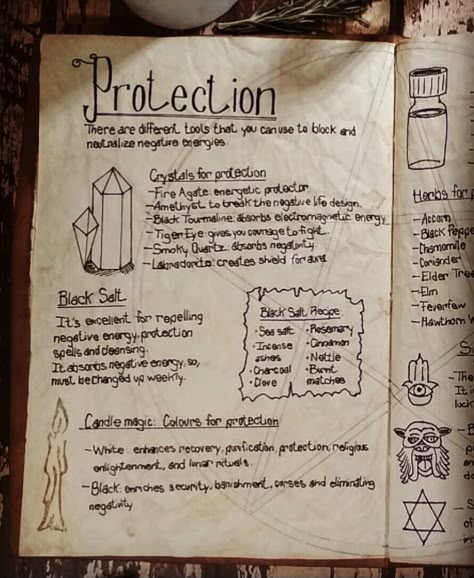 Protection
There are different tools that you can use to block and
neutralize negative energies
Crystals for protection
-Fire Agate energetic protector
-Amethyst to break the negative life design.
-Black Tourmaline: absorbs electromagnetic energy.
-Tiger Eye: gives you courage to fight.
-Smoky Quartz: absorbs negativity.
-Labradorite: creates shield for aura
Black Salt
It's excellent for repelling
negative energy, protection
spells and cleansing.
It absorbs negative energy, so,
must be changed up weekly.
Black Salt Recipe
• Sea salt
• Incense
ashes
• Charcoal
• Clove
• Rosemary
• Cinnamon
• Nettle
• Burnt
matches
Candle magic: Colours for protection
-White: enhances recovery, purification, protection, religious
enlightenment, and lunar rituals.
-Black: enriches security, banishment, corses and eliminating
negativity
Herbs for
-Acorn
-Black Peppe
-Chamomile
-Coriander
-Elder Tree
-Elm
-Feverfew
-Hawthorn
-The
It i
luck